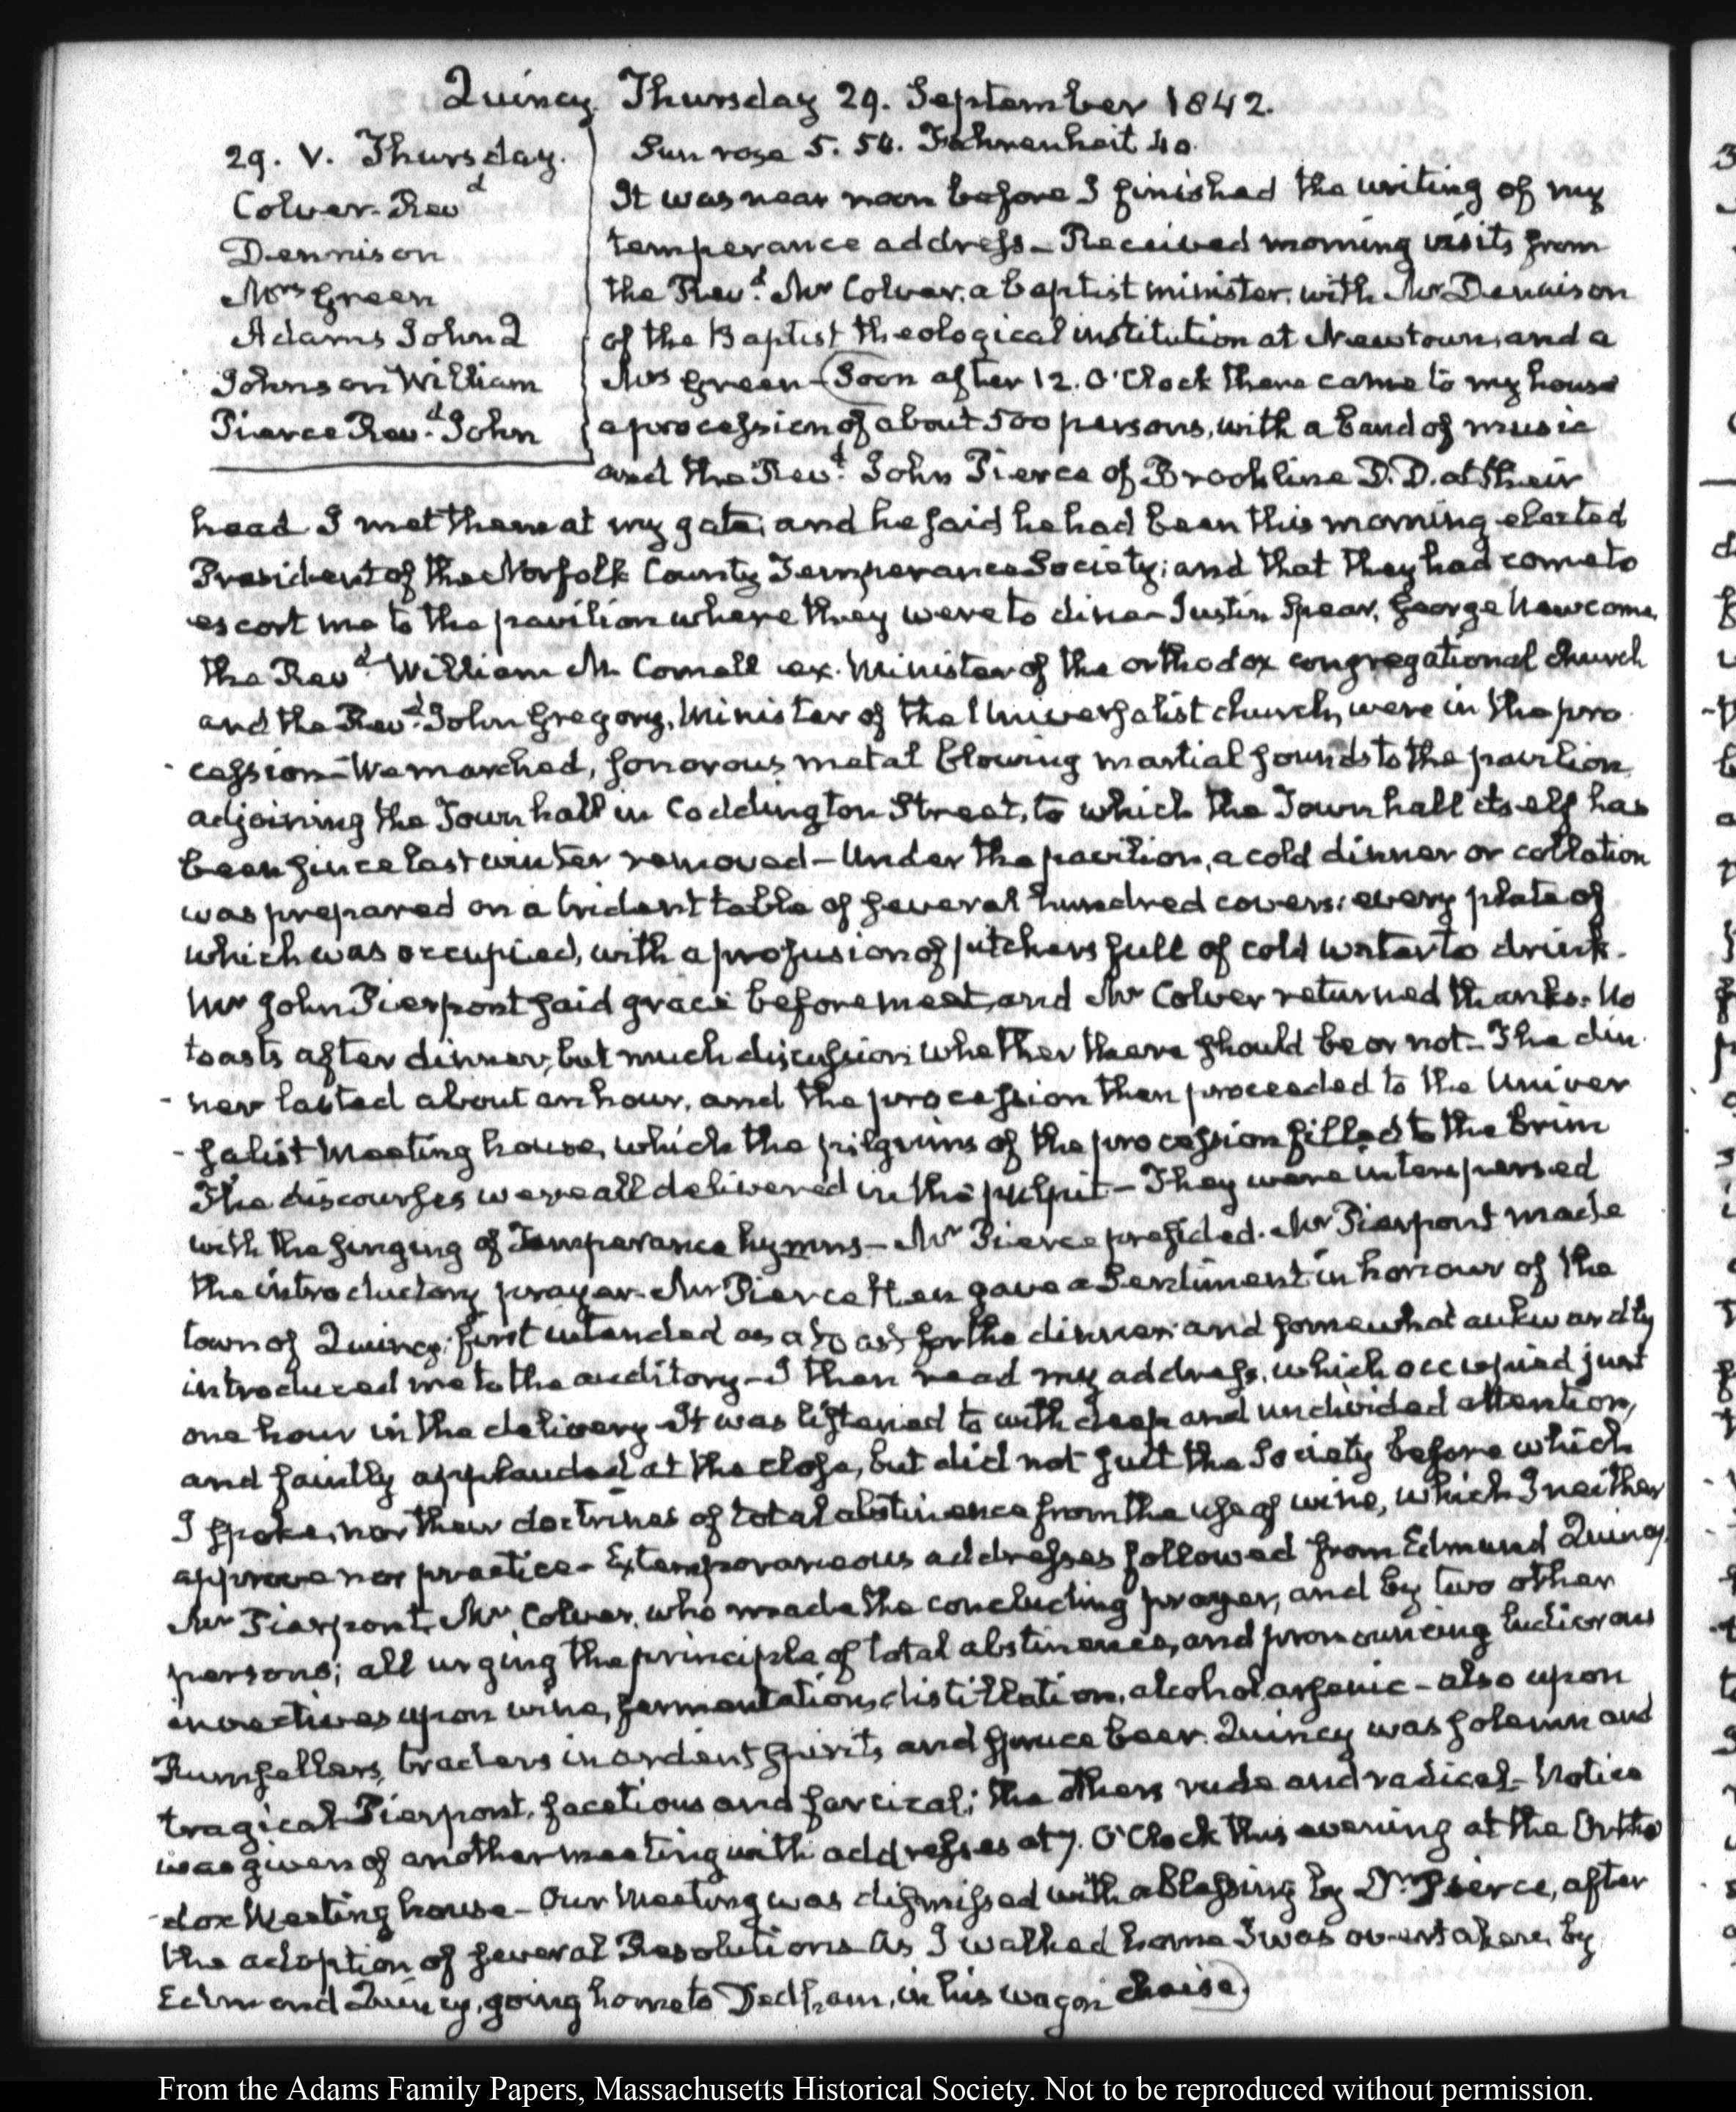 Quincy Thursday 29. September 1842.
29. V. Thursday.
Colver. Revd
Dennison
Mrs Green
Adams John 2
Johnson William
Pierce Revd. John
Sun rose 5. 54. Fahrenheit 40.
It was near noon before I finished the writing of my
temperance address — Received morning visits from
the Revd. Mr Colver, a baptist minister, with Mr Dennison
of the Baptist theological institution at Newtown, and a
Mrs Green — (Soon after 12. O'Clock there came to my house
a procession of about 500 persons, with a band of music
and the Revd. John Pierce of Brookline D.D. at their
head I met them at my gate, and he said he had been this morning elected
President of the Norfolk County Temperance Society; and that they had come to
escort me to the pavilion where they were to dine — Justin Spear, George Newcome,
the Revd. William M. Cornell ex. Minister of the orthodox congregational church
and the Revd. John Gregory, Minister of the Universalist church, were in the pro
-cession — We marched, sonorous metal blowing martial sounds to the pavilion
adjoining the Town hall in Coddington Street, to which the Town hall itself has
been since last winter removed — Under the pavilion, a cold dinner or collation
was prepared on a trident table of several hundred covers: every plate of
which was occupied, with a profusion of pitchers full of cold water to drink.
Mr John Pierpont said grace before meat, and Mr Colver returned thanks. No
toasts after dinner, but much discussion whether there should be or not — The din
-ner lasted about an hour, and the procession then proceeded to the Univer
-salist Meeting house, which the pilgrims of the procession filled to the brim
The discourses were all delivered in the pulpit — They were interspersed
with the singing of Temperance hymns — Mr Pierce presided. Mr Pierpont made
the introductory prayer. Mr Pierce then gave a Sentiment in honour of the
town of Quincy; first intended as a toast for the dinner; and somewhat aukwardly
introduced me to the auditory — I then read my address, which occupied just
one hour in the delivery — It was listened to with deep and undivided attention,
and faintly applauded at the close, but did not suit the Society before which
I spoke, nor their doctrines of total abstinence from the use of wine, which I neither
approve nor practice — Extemporaneous addresses followed from Edmund Quincy,
Mr Pierpont, Mr Colver, who made the concluding prayer, and by two other
persons; all urging the principle of total abstinence, and pronouncing ludicrous
invectives upon wine, fermentation, distillation, alcohol, arsenic — also upon
Rumsellers, traders in ardent spirits, and spruce beer. Quincy was solemn and
tragical Pierpont, facetious and farcical; the others rude and radical — Notice
was given of another meeting with addresses at 7. O'Clock this evening at the Ortho
-dox Meeting house — Our Meeting was dismissed with a blessing by Dr Pierce, after
the adoption of several Resolutions As I walked home I was overtaken by
Edmond Quincy, going home to Dedham, in his wagon chaise)
From the Adams Family Papers, Massachusetts Historical Society. Not to be reproduced without permission.